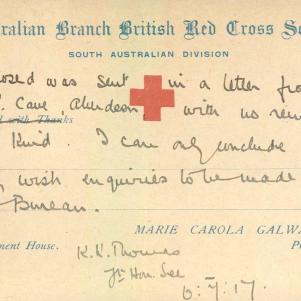 ralian Branch British Red Cross So
SOUTH AUSTRALIAN DIVISION
osed was sent in a letter fro
Cave, Aberdeen, with no rem
d with Thanks
Kind. I can only conclude
wish enquiries to be made
Bureau.
MARIE CAROLA GALWA
ment House.
K. K. Thomas
Hon. Sec
6:7:17.